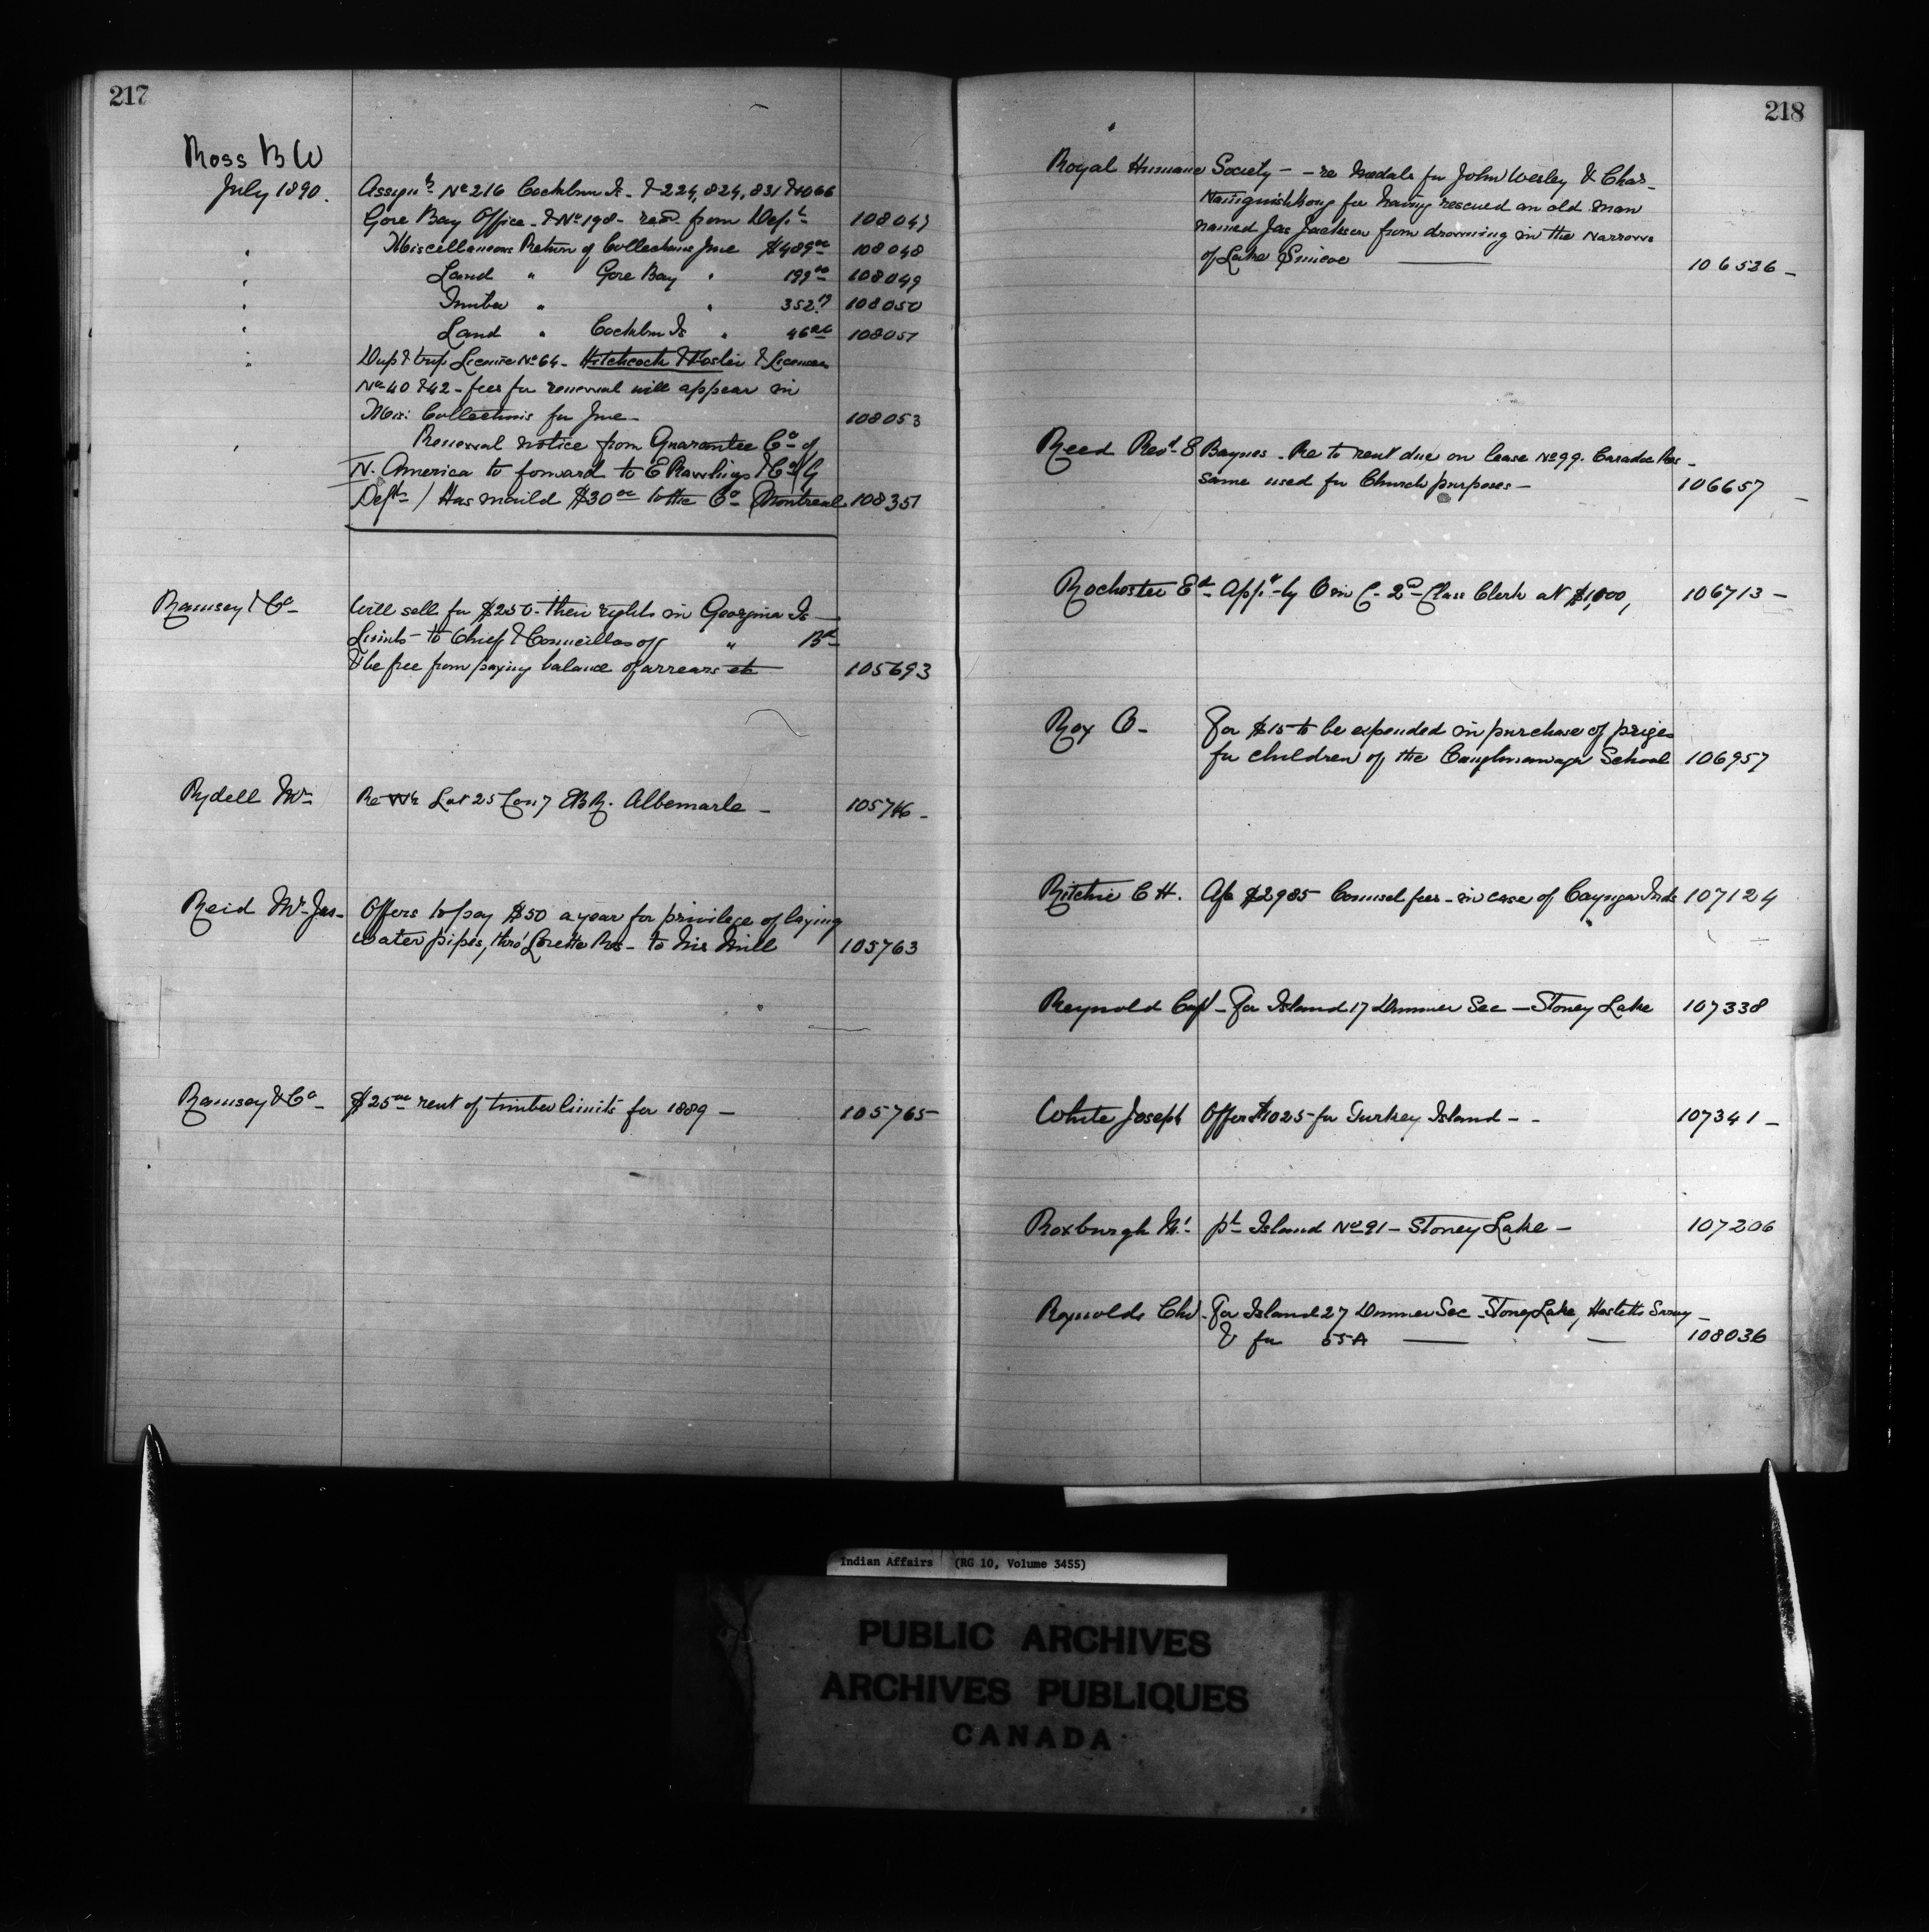 217
Ross B W
July 1890. Assign.ts No 216 Cockburn Is. & 224, 824, 831 & 1066
Gore Bay Office - & No 198 - recd. from Dept. 108047
" Miscellaneous Return of Collections June $489.00 108048
" Land " Gore Bay " 199.00 108049
" Timber " " 352. 108050
" Land " Cockburn Is " 46.00 108051
" Dup & trip License No 64 - Hitchcock & Foster & Licenses
No 40 & 42 - fees for renewal will appear in
Mis: Collections for June - 108053
" Renewal notice from Guarantee Co of
N. America to forward to E Rawlings & Co
Depts / Has mailed $30.00 to the Co Montreal 108351
Ramsey & Co - Will sell for $250 - their rights in Georgina Is -
Limits - to Chief & Councillors of " Bd
& be free from paying balance of arrears etc 105693
Rydell Wm Re Lot 25 Con 7 EBR. Albemarle - 105746 -
Reid Mr Jas - Offers to pay $50 a year for privilege of laying
water pipes, thro' Lorette Res - to his Mill 105763
Ramsey & Co - $25.00 rent of timber limits for 1889 - 105765 -
218
Royal Humane Society - - re Medals for John Wesley & Chas -
Naingishkong for having rescued an old man
named Jas Jackson from drowning in the Narrows
of Lake Simcoe 106526 -
Reed Revd. 8 Baynes - Re to rent due on lease No 99. Caradoc Res -
same used for Church purposes - 106657 -
Rochester Ed. App.d by O in C - 2nd Class Clerk at $1,000, 106713 -
Roy O - For $15 to be expended in purchase of prizes
for children of the Caughnawaga School 106957
Ritchie C H. A/c $2985 Counsel fees - in case of Cayuga Inds 107124
Reynold Capt - For Island 17 Dummer Sec - Stoney Lake 107338
White Joseph Offer $1025 for Turkey Island - - 107341 -
Roxburgh M. pt Island No 91 - Stoney Lake - 107206
Reynolds Chs. For Island 27 Dummer Sec - Stoney Lake, Survey -
& for 55A 108036
Indian Affairs (RG 10, Volume 3455)
PUBLIC ARCHIVES
ARCHIVES PUBLIQUES
CANADA